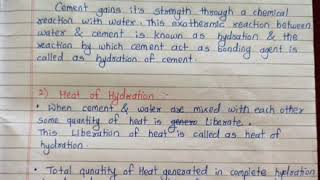 Cement gains it's strength through a chemical
reaction with water. This exothermic reaction between
water & cement is known as hydration & the
reaction by which cement act as bonding agent is
called as hydration of cement.
2) Heat of Hydration :-
• When cement & water are mixed with each other
some quantity of heat is liberate.
This Liberation of heat is called as heat of
hydration.
• Total quantity of Heat generated in complete hydration